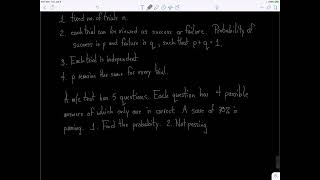 1. fixed no. of trials n.
2. each trial can be viewed as success or failure. Probability of
success is p and failure is q, such that p + q = 1.
3. Each trial is independent
4. p remains the same for every trial.
A m/c test has 5 questions. Each question has 4 possible
answers of which only one is correct. A score of 70% is
passing. 1. Find the probability. 2. Not passing